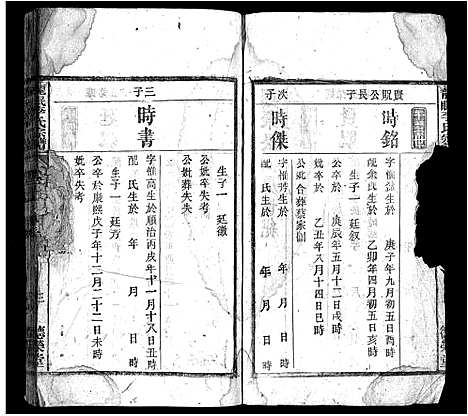 賢貺公長子
時銘
字惟益生於 庚子年九月初五日時
配余氏生於 乙卯年四月初五日時
庚辰年五月十二日戌時
乙丑年八月十四日巳時
生子一 廷叙
公妣合葬蔡家
次子
時傑
字惟芳生於 年 月 日時
配 氏生於 年 月 日時
生子一 廷徽
公妣卒失考
公妣葬失
三子
時書
字惟高生於順治丙戌年十一月十八日丑時
配 氏生於 年 月 日時
生子一 廷芳
公卒於康熙戊子年十二月二十二日未時
妣卒失考
德英堂